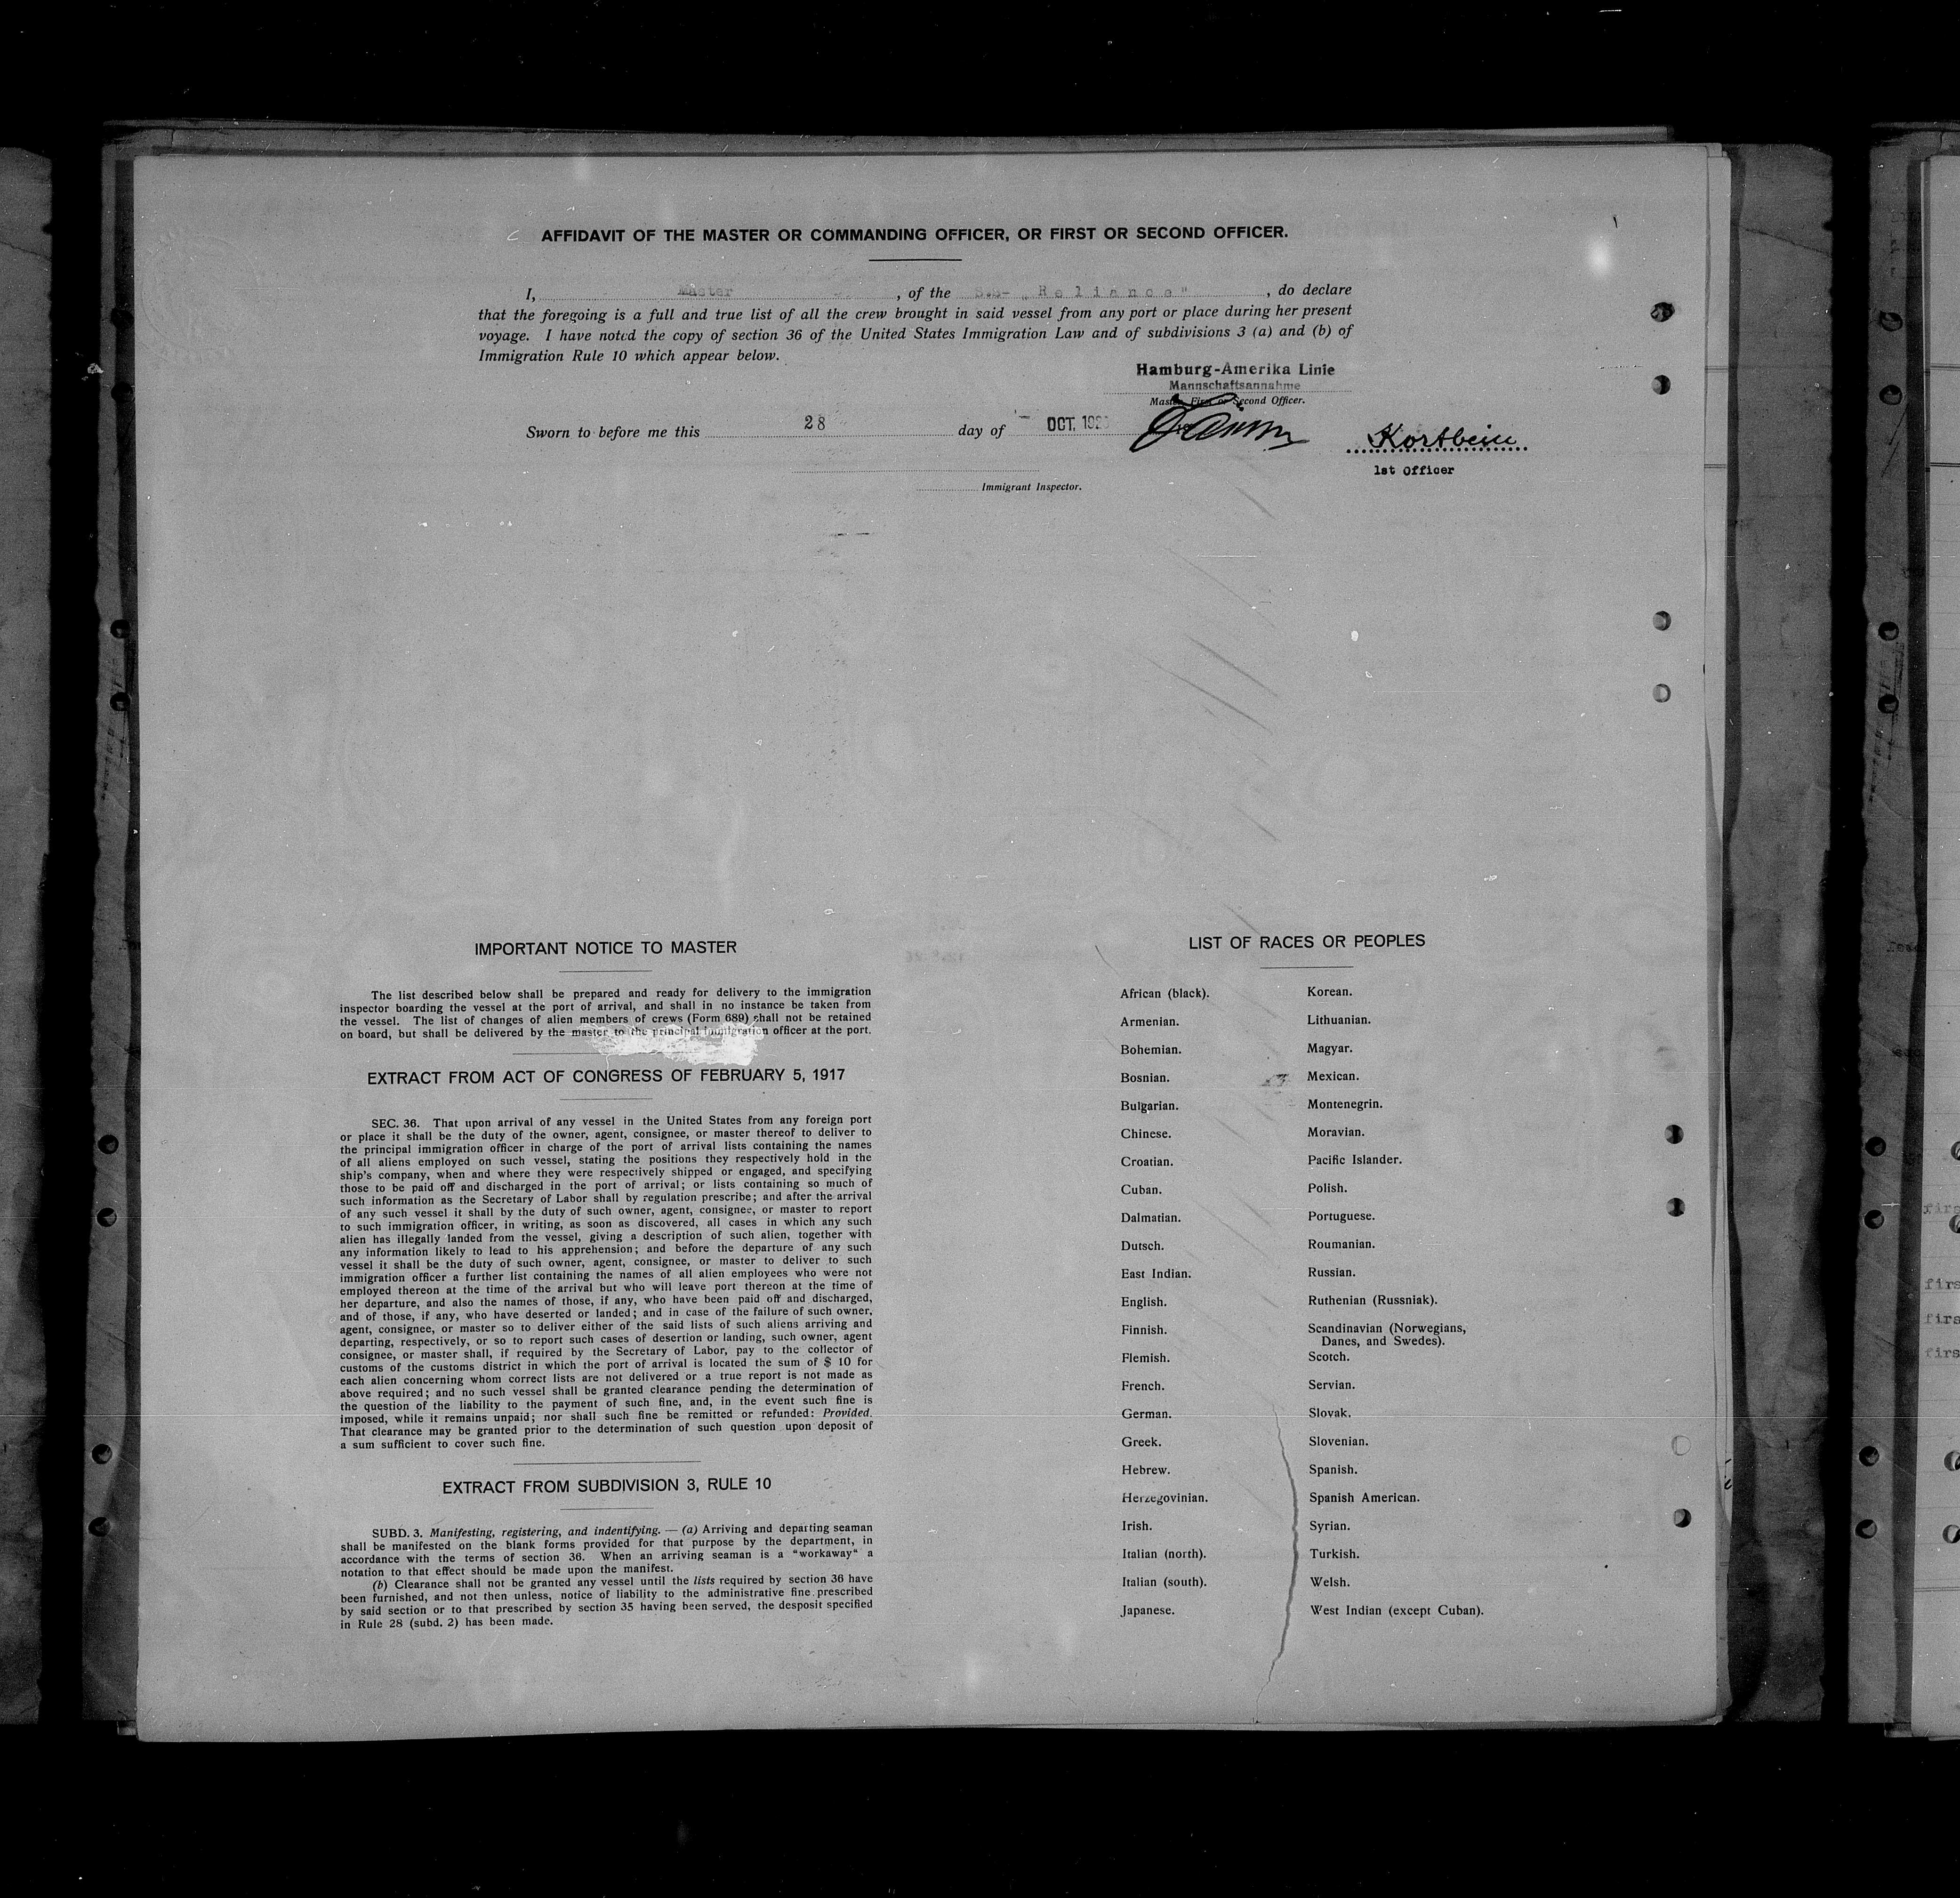 AFFIDAVIT OF THE MASTER OR COMMANDING OFFICER, OR FIRST OR SECOND OFFICER.
I, Master , of the S.S- „Reliance" , do declare
that the foregoing is a full and true list of all the crew brought in said vessel from any port or place during her present
voyage. I have noted the copy of section 36 of the United States Immigration Law and of subdivisions 3 (a) and (b) of
Immigration Rule 10 which appear below.
Hamburg-Amerika Linie
Mannschaftsannahme
Master, First or Second Officer.
Sworn to before me this 28 day of OCT. 192
Kortbein
1st Officer
Immigrant Inspector.
IMPORTANT NOTICE TO MASTER
The list described below shall be prepared and ready for delivery to the immigration
inspector boarding the vessel at the port of arrival, and shall in no instance be taken from
the vessel. The list of changes of alien members of crews (Form 689) shall not be retained
on board, but shall be delivered by the master to the principal immigration officer at the port.
EXTRACT FROM ACT OF CONGRESS OF FEBRUARY 5, 1917
SEC. 36. That upon arrival of any vessel in the United States from any foreign port
or place it shall be the duty of the owner, agent, consignee, or master thereof to deliver to
the principal immigration officer in charge of the port of arrival lists containing the names
of all aliens employed on such vessel, stating the positions they respectively hold in the
ship's company, when and where they were respectively shipped or engaged, and specifying
those to be paid off and discharged in the port of arrival; or lists containing so much of
such information as the Secretary of Labor shall by regulation prescribe; and after the arrival
of any such vessel it shall by the duty of such owner, agent, consignee, or master to report
to such immigration officer, in writing, as soon as discovered, all cases in which any such
alien has illegally landed from the vessel, giving a description of such alien, together with
any information likely to lead to his apprehension; and before the departure of any such
vessel it shall be the duty of such owner, agent, consignee, or master to deliver to such
immigration officer a further list containing the names of all alien employees who were not
employed thereon at the time of the arrival but who will leave port thereon at the time of
her departure, and also the names of those, if any, who have been paid off and discharged,
and of those, if any, who have deserted or landed; and in case of the failure of such owner,
agent, consignee, or master so to deliver either of the said lists of such aliens arriving and
departing, respectively, or so to report such cases of desertion or landing, such owner, agent
consignee, or master shall, if required by the Secretary of Labor, pay to the collector of
customs of the customs district in which the port of arrival is located the sum of $ 10 for
each alien concerning whom correct lists are not delivered or a true report is not made as
above required; and no such vessel shall be granted clearance pending the determination of
the question of the liability to the payment of such fine, and, in the event such fine is
imposed, while it remains unpaid; nor shall such fine be remitted or refunded: Provided.
That clearance may be granted prior to the determination of such question upon deposit of
a sum sufficient to cover such fine.
EXTRACT FROM SUBDIVISION 3, RULE 10
SUBD. 3. Manifesting, registering, and indentifying. — (a) Arriving and departing seaman
shall be manifested on the blank forms provided for that purpose by the department, in
accordance with the terms of section 36. When an arriving seaman is a "workaway" a
notation to that effect should be made upon the manifest.
(b) Clearance shall not be granted any vessel until the lists required by section 36 have
been furnished, and not then unless, notice of liability to the administrative fine prescribed
by said section or to that prescribed by section 35 having been served, the desposit specified
in Rule 28 (subd. 2) has been made.
LIST OF RACES OR PEOPLES
African (black).
Armenian.
Bohemian.
Bosnian.
Bulgarian.
Chinese.
Croatian.
Cuban.
Dalmatian.
Dutsch.
East Indian.
English.
Finnish.
Flemish.
French.
German.
Greek.
Hebrew.
Herzegovinian.
Irish.
Italian (north).
Italian (south).
Japanese.
Korean.
Lithuanian.
Magyar.
Mexican.
Montenegrin.
Moravian.
Pacific Islander.
Polish.
Portuguese.
Roumanian.
Russian.
Ruthenian (Russniak).
Scandinavian (Norwegians,
Danes, and Swedes).
Scotch.
Servian.
Slovak.
Slovenian.
Spanish.
Spanish American.
Syrian.
Turkish.
Welsh.
West Indian (except Cuban).
firs
firs
firs
firs